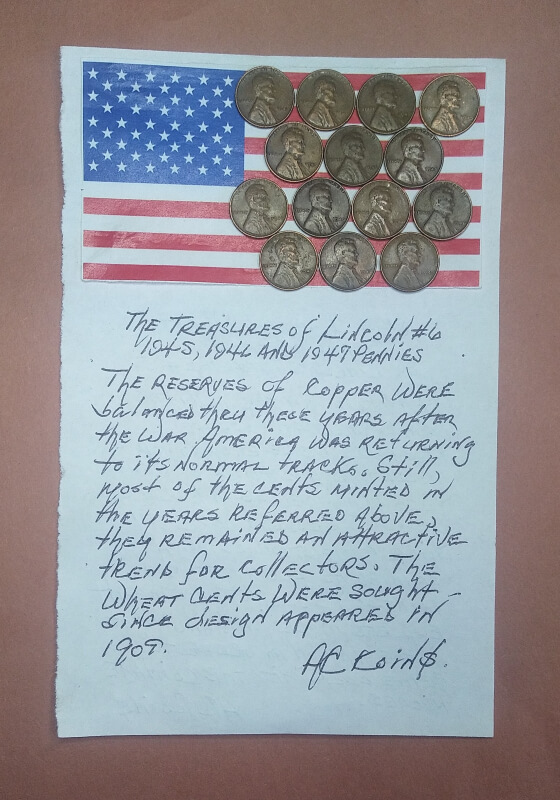 The Treasures of Lincoln #6
1945, 1946 AND 1947 PENNIES
The RESERVES of COPPER WERE
balanced thru these years AFTER
the WAR, AMERICA WAS RETURNING
to its NORMAL TRACKS. Still,
most of the cents MINTED IN
the YEARS REFERRED Above,
they REMAINED AN ATTRACTIVE
TREND FOR COLLECTORS. The
Wheat CENTS WERE SOUGHT
SINCE design APPEARED IN
1909.
AC Koin$.